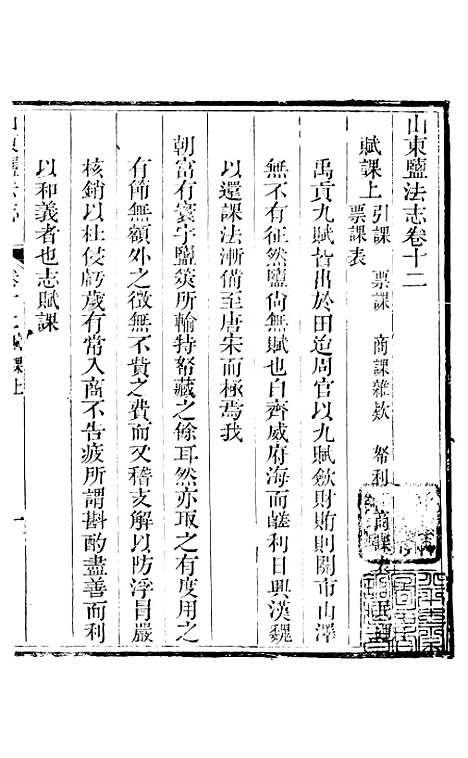 山東鹽法志卷十二
賦課上 引課 票課 商課雜款 帑利 商課
票課表
禹貢九賦皆出於田迨周官以九賦斂財賄則關市山澤
無不有征然鹽尚無賦也自齊威府海而鹺利日興漢魏
以還課法漸備至唐宋而極焉我
朝富有寰宇鹽筴所輸特帑藏之餘耳然亦取之有度用之
有節無額外之徵無不貲之費而又稽支解以防浮冒嚴
核銷以杜侵虧歲有常入商不告疲所謂斟酌盡善而利
以和義者也志賦課